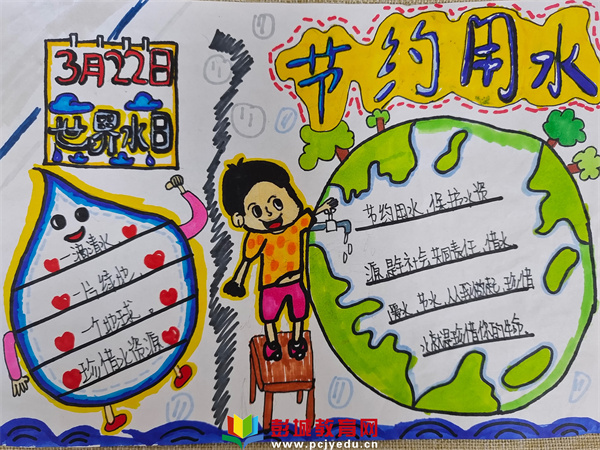 3月22日
世界水日
节约用水
一滴清水
一片绿地
一个地球。
珍惜水资源
节约用水,保护水资
源是全社会共同责任,借水
水就是珍惜你的生命
彭城教育网
www.pcjyedu.cn